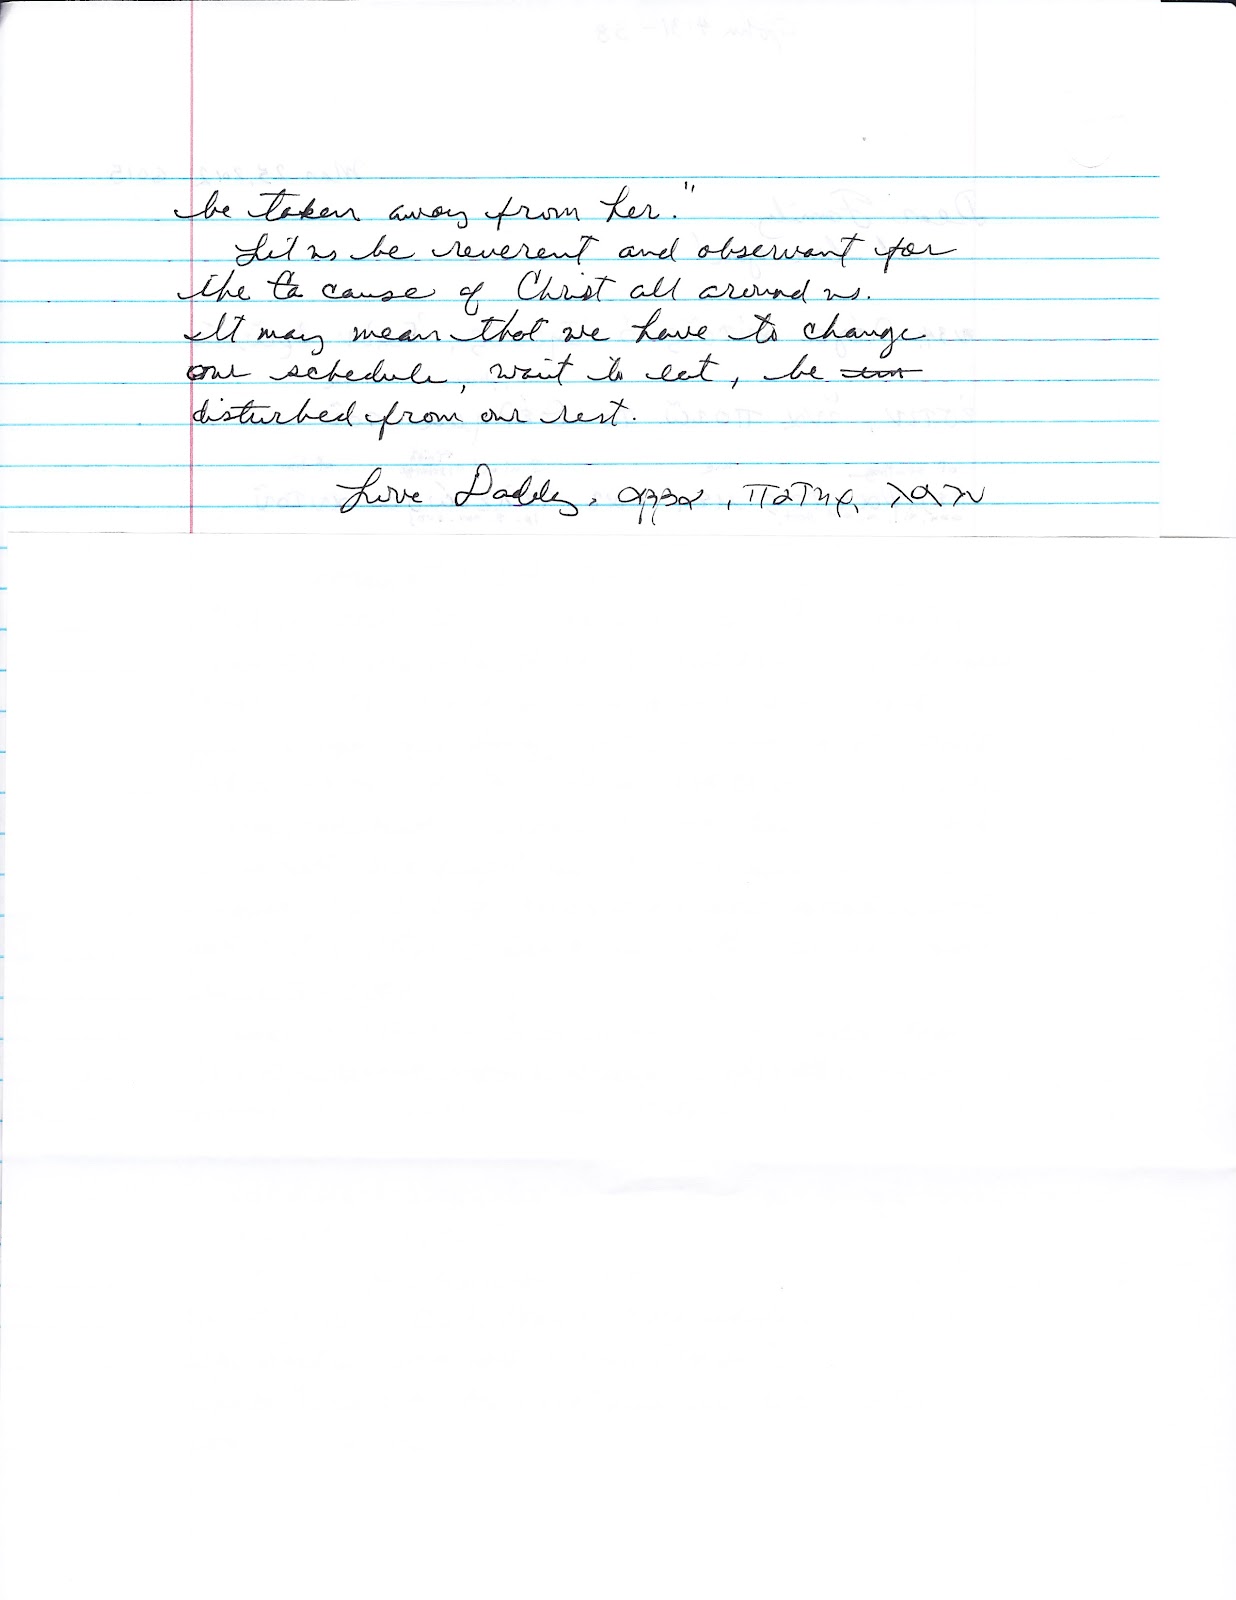 be taken away from her."
Let us be reverent and observant for
the cause of Christ all around us.
It may mean that we have to change
our schedule, wait to eat, be
disturbed from our rest.
Love Daddy,